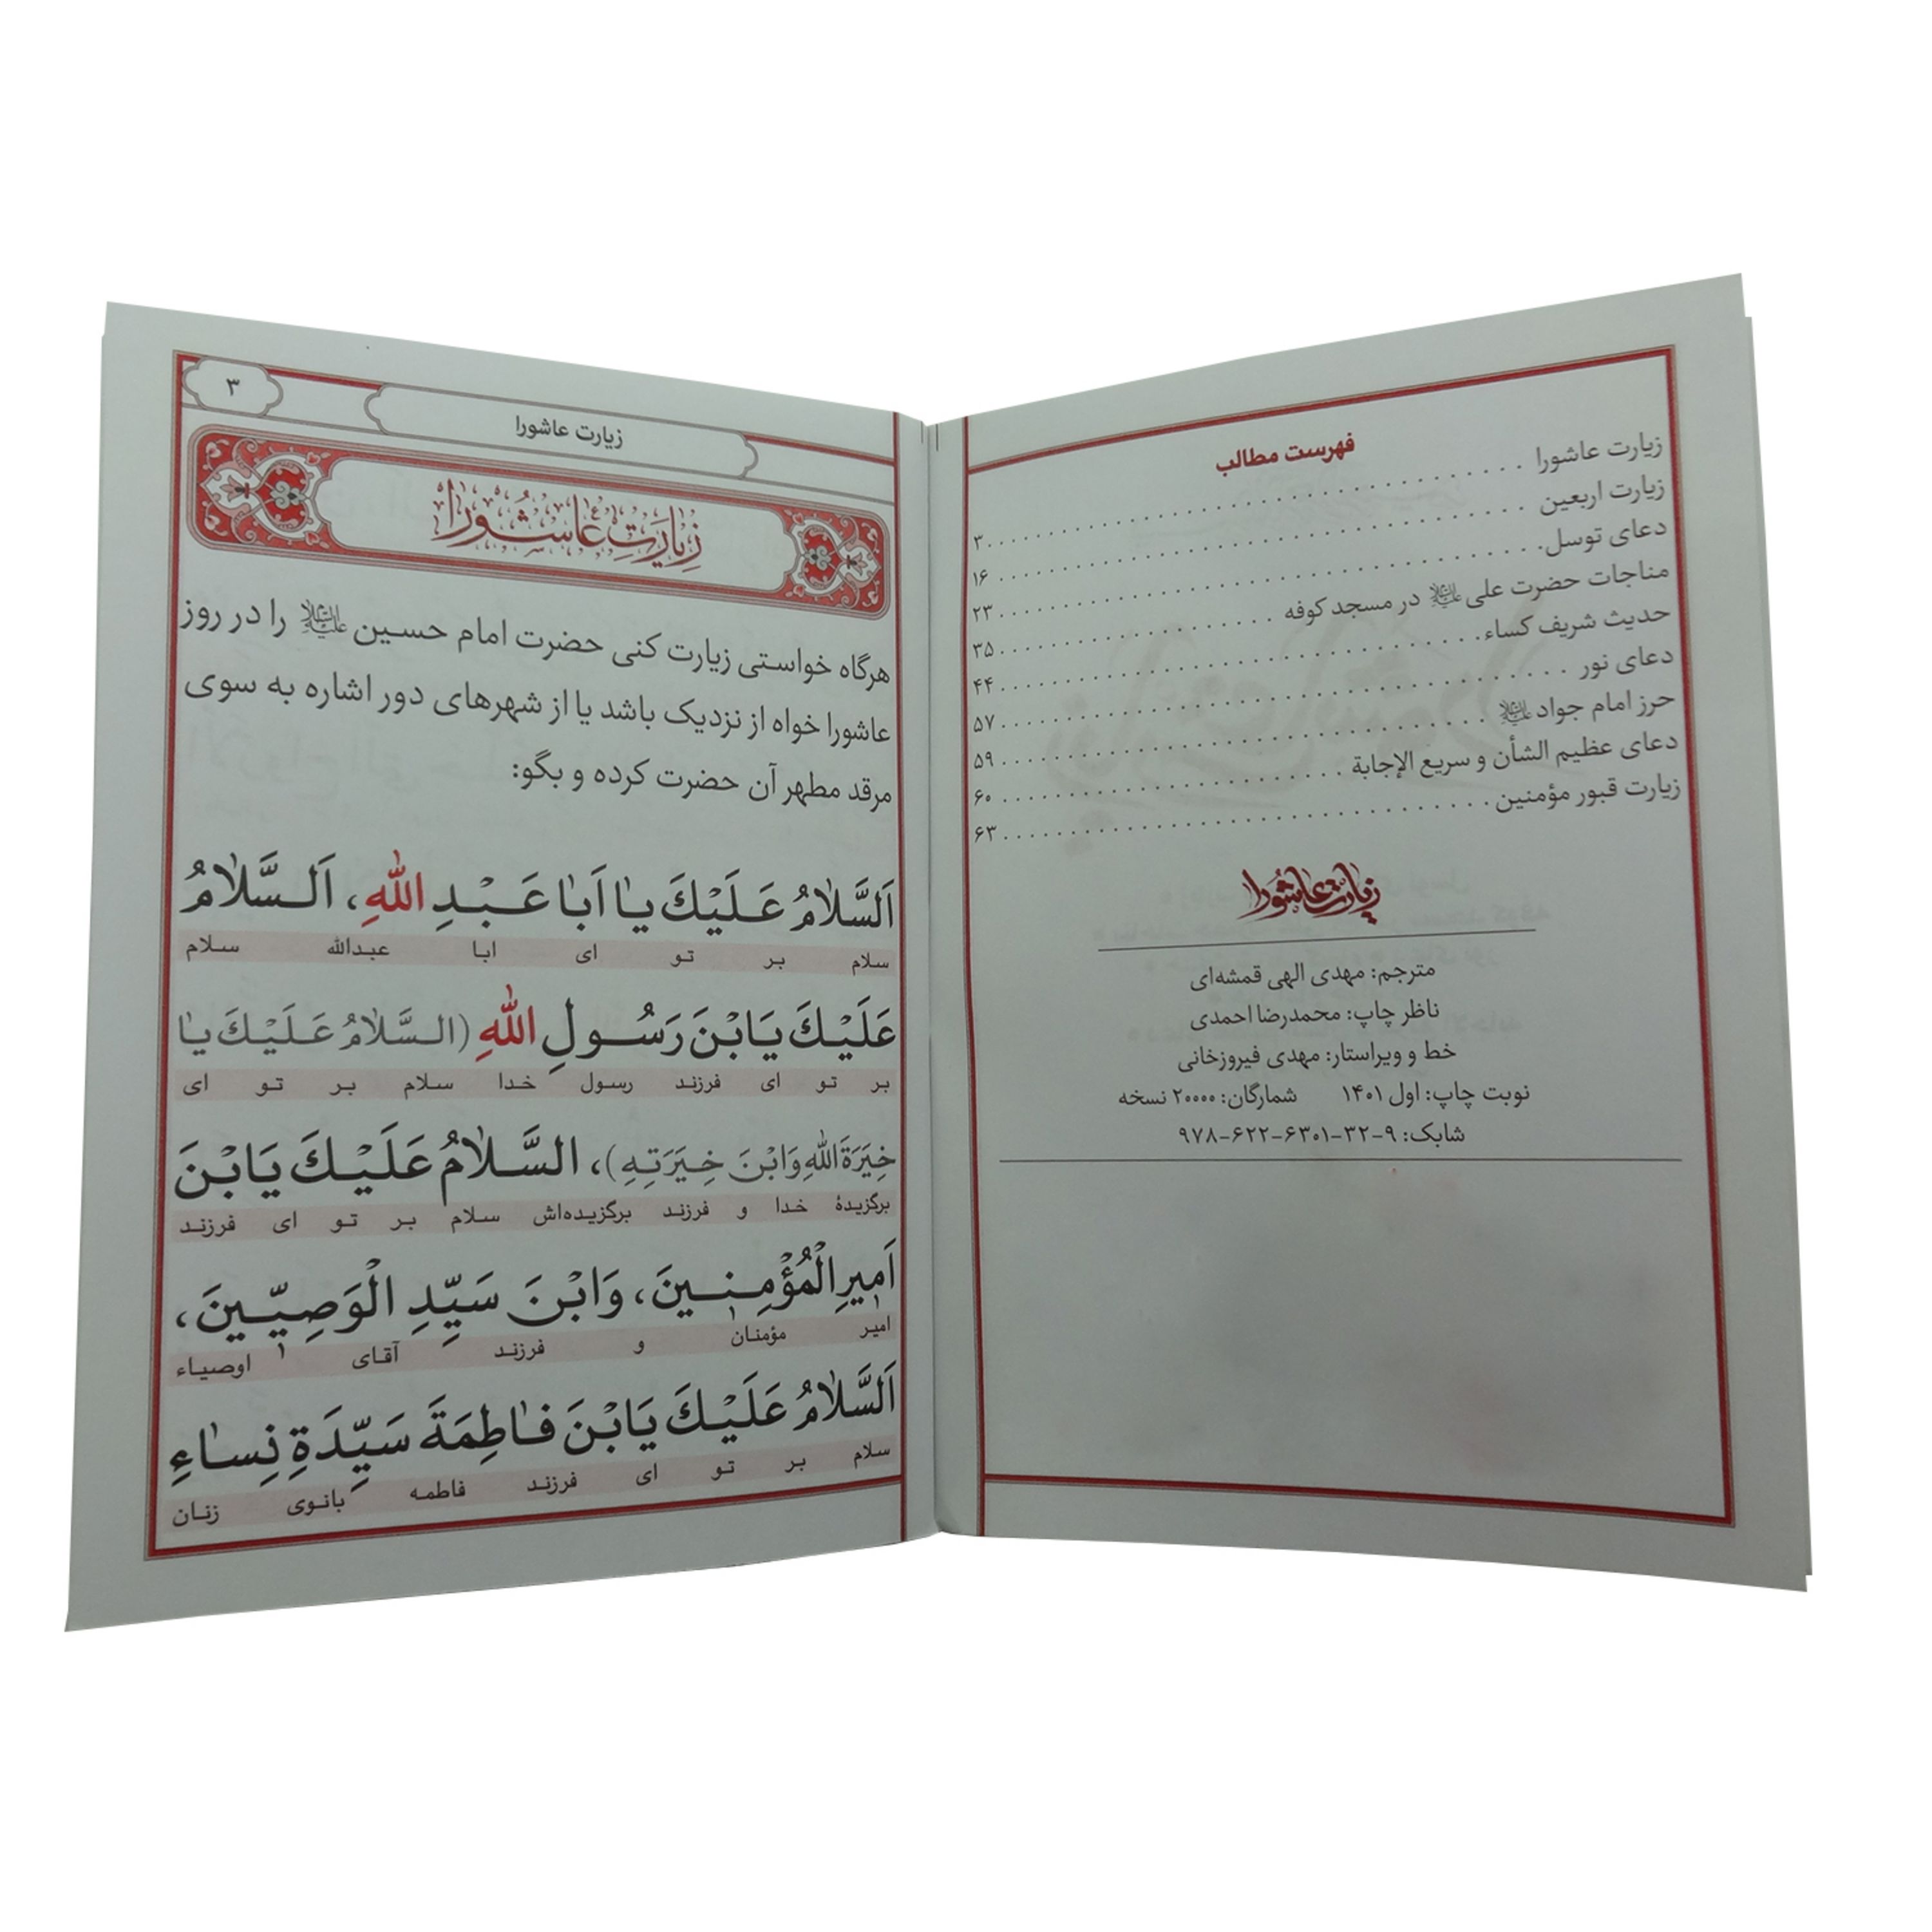 فهرست مطالب
زیارت عاشورا ۳
زیارت اربعین ۱۶
دعای توسل ۲۳
مناجات حضرت علی علیه‌السلام در مسجد کوفه ۳۵
حدیث شریف کساء ۴۴
دعای نور ۵۷
حرز امام جواد علیه‌السلام ۵۹
دعای عظیم الشأن و سریع الإجابة ۶۰
زیارت قبور مؤمنین ۶۳
زیارت عاشورا
مترجم: مهدی الهی قمشه‌ای
ناظر چاپ: محمدرضا احمدی
خط و ویراستار: مهدی فیروزخانی
نوبت چاپ: اول ۱۴۰۱ شمارگان: ۲۰۰۰۰ نسخه
شابک: ۹-۳۲-۶۳۰۱-۶۲۲-۹۷۸
زیارت عاشورا ۳
زِیارَتِ عاشُورا
هرگاه خواستی زیارت کنی حضرت امام حسین علیه‌السلام را در روز
عاشورا خواه از نزدیک باشد یا از شهرهای دور اشاره به سوی
مرقد مطهر آن حضرت کرده و بگو:
اَلسَّلامُ عَلَیْكَ یا اَبا عَبْدِ اللهِ، اَلسَّلامُ
سلام بر تو ای ابا عبدالله سلام
عَلَیْكَ یَابْنَ رَسُولِ اللهِ (السَّلامُ عَلَیْكَ یا
بر تو ای فرزند رسول خدا سلام بر تو ای
خِیَرَةَ اللهِ وَابْنَ خِیَرَتِهِ)، السَّلامُ عَلَیْكَ یَابْنَ
برگزیدهٔ خدا و فرزند برگزیده‌اش سلام بر تو ای فرزند
اَمیرِ الْمُؤْمِنینَ، وَابْنَ سَیِّدِ الْوَصِیّینَ،
امیر مؤمنان و فرزند آقای اوصیاء
اَلسَّلامُ عَلَیْكَ یَابْنَ فاطِمَةَ سَیِّدَةِ نِساءِ
سلام بر تو ای فرزند فاطمه بانوی زنان